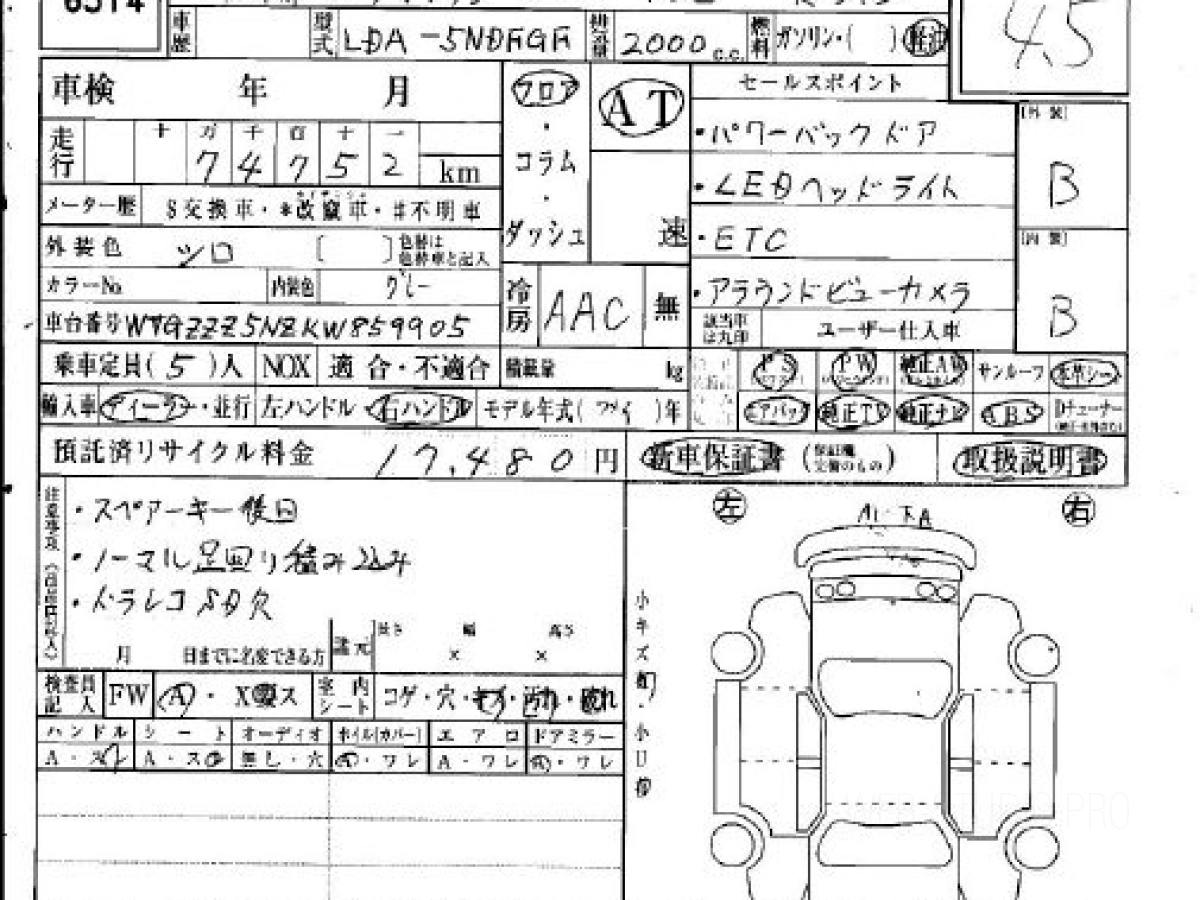 6514
車歴 型式 LDA-5NDFGF 排気量 2000 c.c. 燃料 ガソリン・( ) 軽油
4.5
車検 年 月 フロア AT セールスポイント
・パワーバックドア [外装]
走行 十 万 千 百 十 一
7 4 7 5 2 km ・コラム B
メーター歴 $交換車・*改竄車・#不明車 ・LEDヘッドライト
外装色 シロ [ ] 色替は色替車と記入 ・ダッシュ 速 ・ETC [内装]
カラーNo. 内装色 グレー 冷房 AAC 無 ・アラウンドビューカメラ B
車台番号 WVGZZZ5NZKW859905 該当車は丸印 ユーザー仕入車
乗車定員(5)人 NOX 適合・不適合 積載量 kg PS PW 純正AW サンルーフ 本革シート
輸入車 ディーラー・並行 左ハンドル・右ハンドル モデル年式( )年 エアバッグ 純正TV 純正ナビ ABS
預託済リサイクル料金 17,480円 新車保証書 (保証継交換のもの) 取扱説明書
注意事項
・スペアーキー後日
・ノーマル足回り積み込み
・ドラレコSD欠
左 右
月 日までに名変できる方 諸元 長さ 幅 高さ
× ×
検査員記入 FW A・X 室内シート コゲ・穴・キズ・汚れ・破れ
ハンドル シート オーディオ ホイル(カバー) エアロ ドアミラー
A・スレ A・スレ 無し・穴 A・ワレ A・ワレ A・ワレ
小キズ有・小U有
PRO